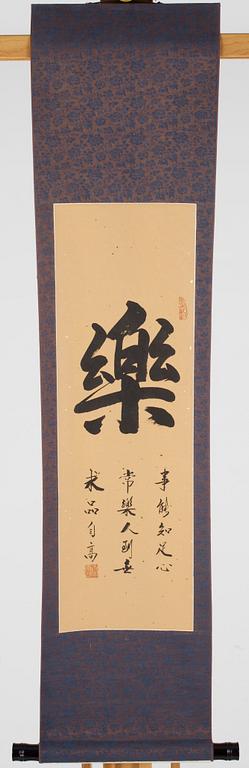 樂
事能知足心
常樂人到無
求品自高